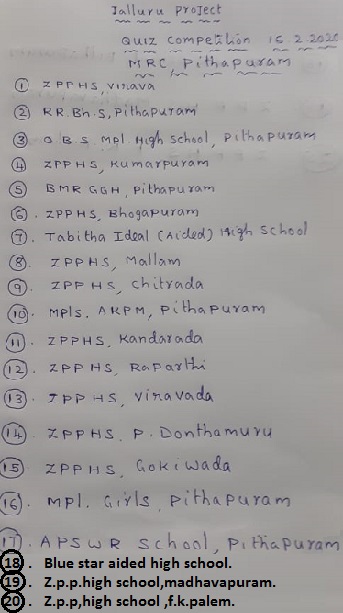 Jalluru Project
Quiz Competition 16.2.2020
MRC Pithapuram
1 ZPPHS, Virava
2) RR.Bh.S, Pithapuram
3 O B S Mpl High School, Pithapuram
4 ZPPHS, Kumarpuram
5 BMR GGH, Pithapuram
6. ZPPHS, Bhogapuram
7. Tabitha Ideal (Aided) High School
8. ZPPHS, Mallam
9. ZPPHS, Chitrada
10. Mpls. AKPM, Pithapuram
11. ZPPHS, Kandarada
12. ZPPHS, Raparthi
13. ZPPHS, Viravada
14 ZPPHS, P. Donthamuru
15 ZPPHS, Gokiwada
16. Mpl. Girls, Pithapuram
17. APSWR School, Pithapuram
18. Blue star aided high school.
19. Z.p.p.high school,madhavapuram.
20. Z.p.p,high school ,f.k.palem.